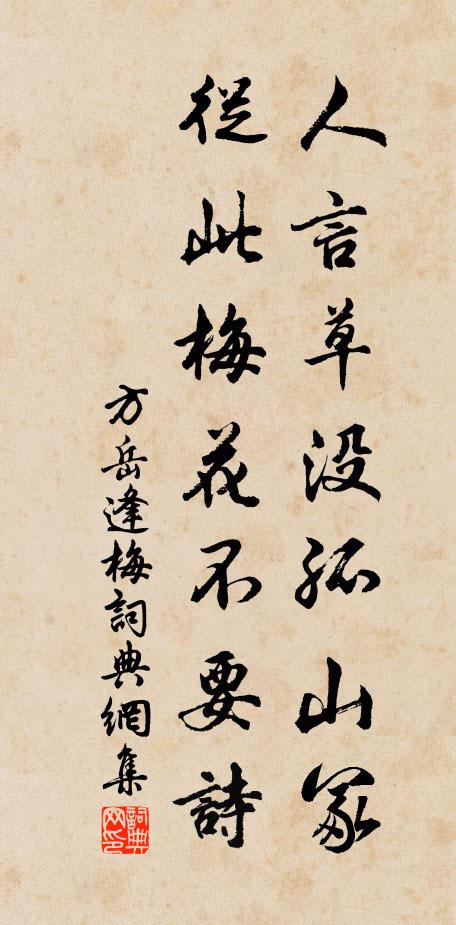 人言草没孤山冢
從此梅花不要詩
方岳逢梅詞典網集
詞典網印